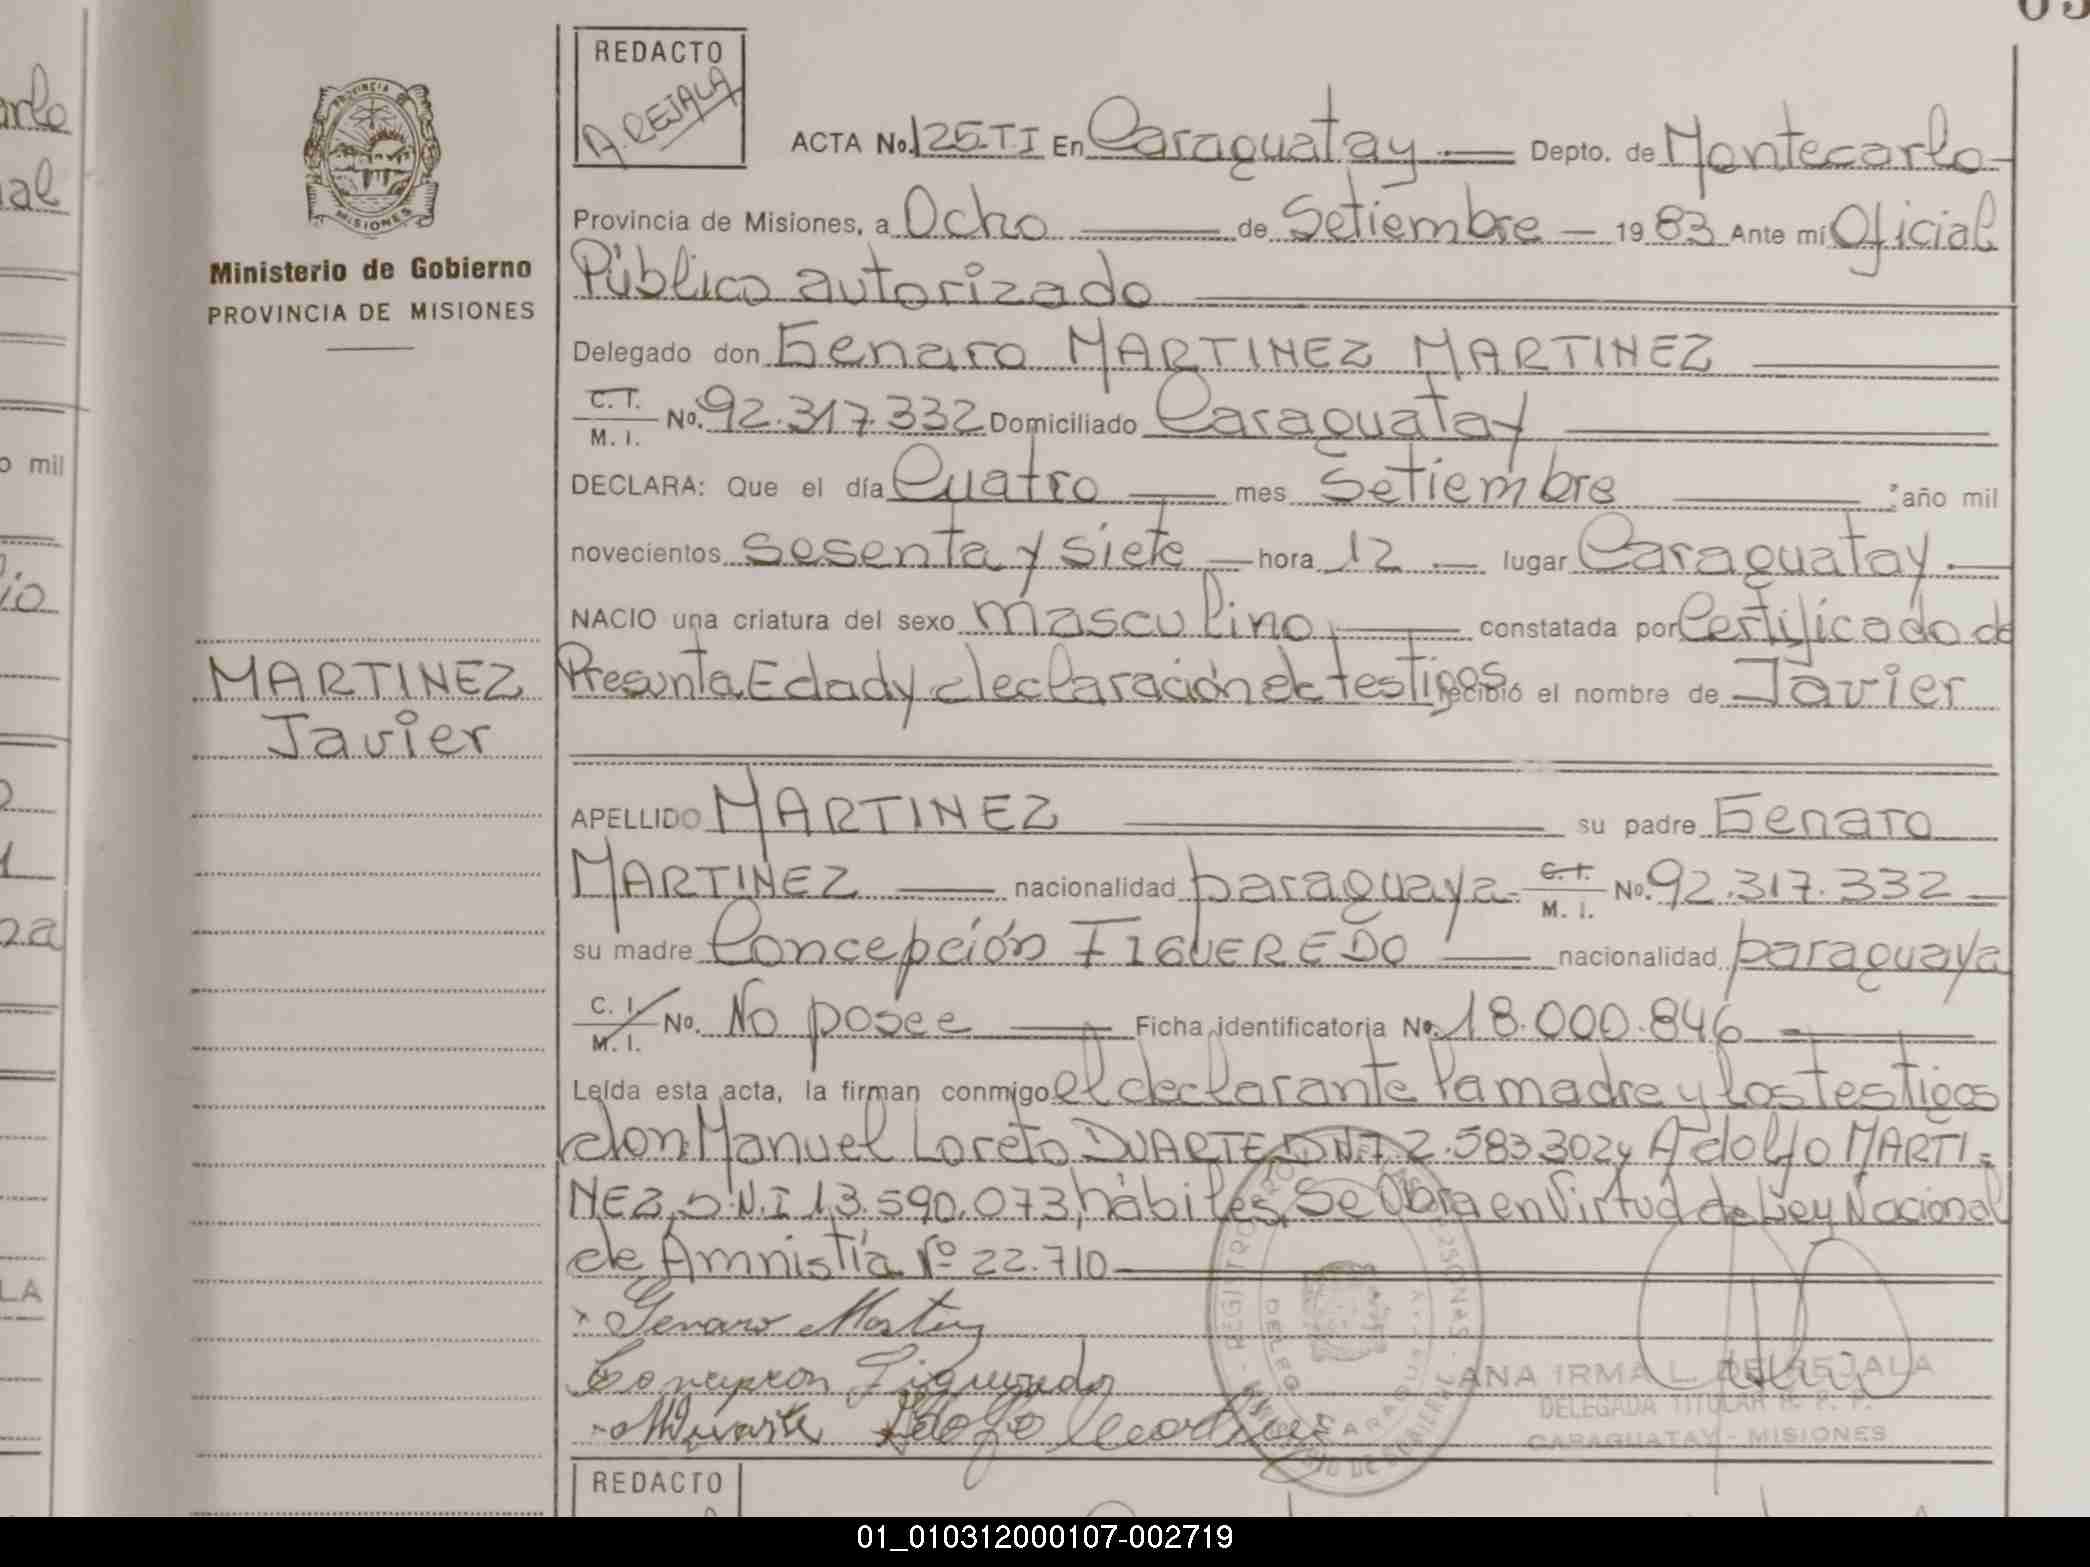 REDACTO
A. REJALA
ACTA No. 125 TI En Caraguatay Depto. de Montecarlo
Provincia de Misiones, a Ocho de Setiembre 1983 Ante mí Oficial
Público autorizado
Delegado don Genaro MARTINEZ MARTINEZ
C. T. M. I. No. 92.317.332 Domiciliado Caraguatay
DECLARA: Que el día Cuatro mes Setiembre año mil
novecientos sesenta y siete hora 12 lugar Caraguatay
NACIO una criatura del sexo masculino constatada por Certificado de
Presunta Edad y declaración de testigos recibió el nombre de Javier
APELLIDO MARTINEZ su padre Genaro
MARTINEZ nacionalidad paraguaya C. I. M. I. No. 92.317.332
su madre Concepción FIGUEREDO nacionalidad paraguaya
C. I. M. I. No. No posee Ficha identificatoria No. 18.000.846
Leída esta acta, la firman conmigo el declarante la madre y los testigos
don Manuel Loreto DUARTE D.N.I 2.583.302 y Adolfo MARTI-
NEZ, D.N.I 13.590.073, hábiles, Se Obra en Virtud de Ley Nacional
de Amnistía Nº 22.710
Genaro Martinez
Concepcion Figueredo
MDuarte Adolfo Martinez
ANA IRMA L. DE REJALA
DELEGADA TITULAR R. P. P.
CARAGUATAY - MISIONES
REDACTO
PROVINCIA
MISIONES
Ministerio de Gobierno
PROVINCIA DE MISIONES
MARTINEZ
Javier
o mil
LA
01_010312000107-002719